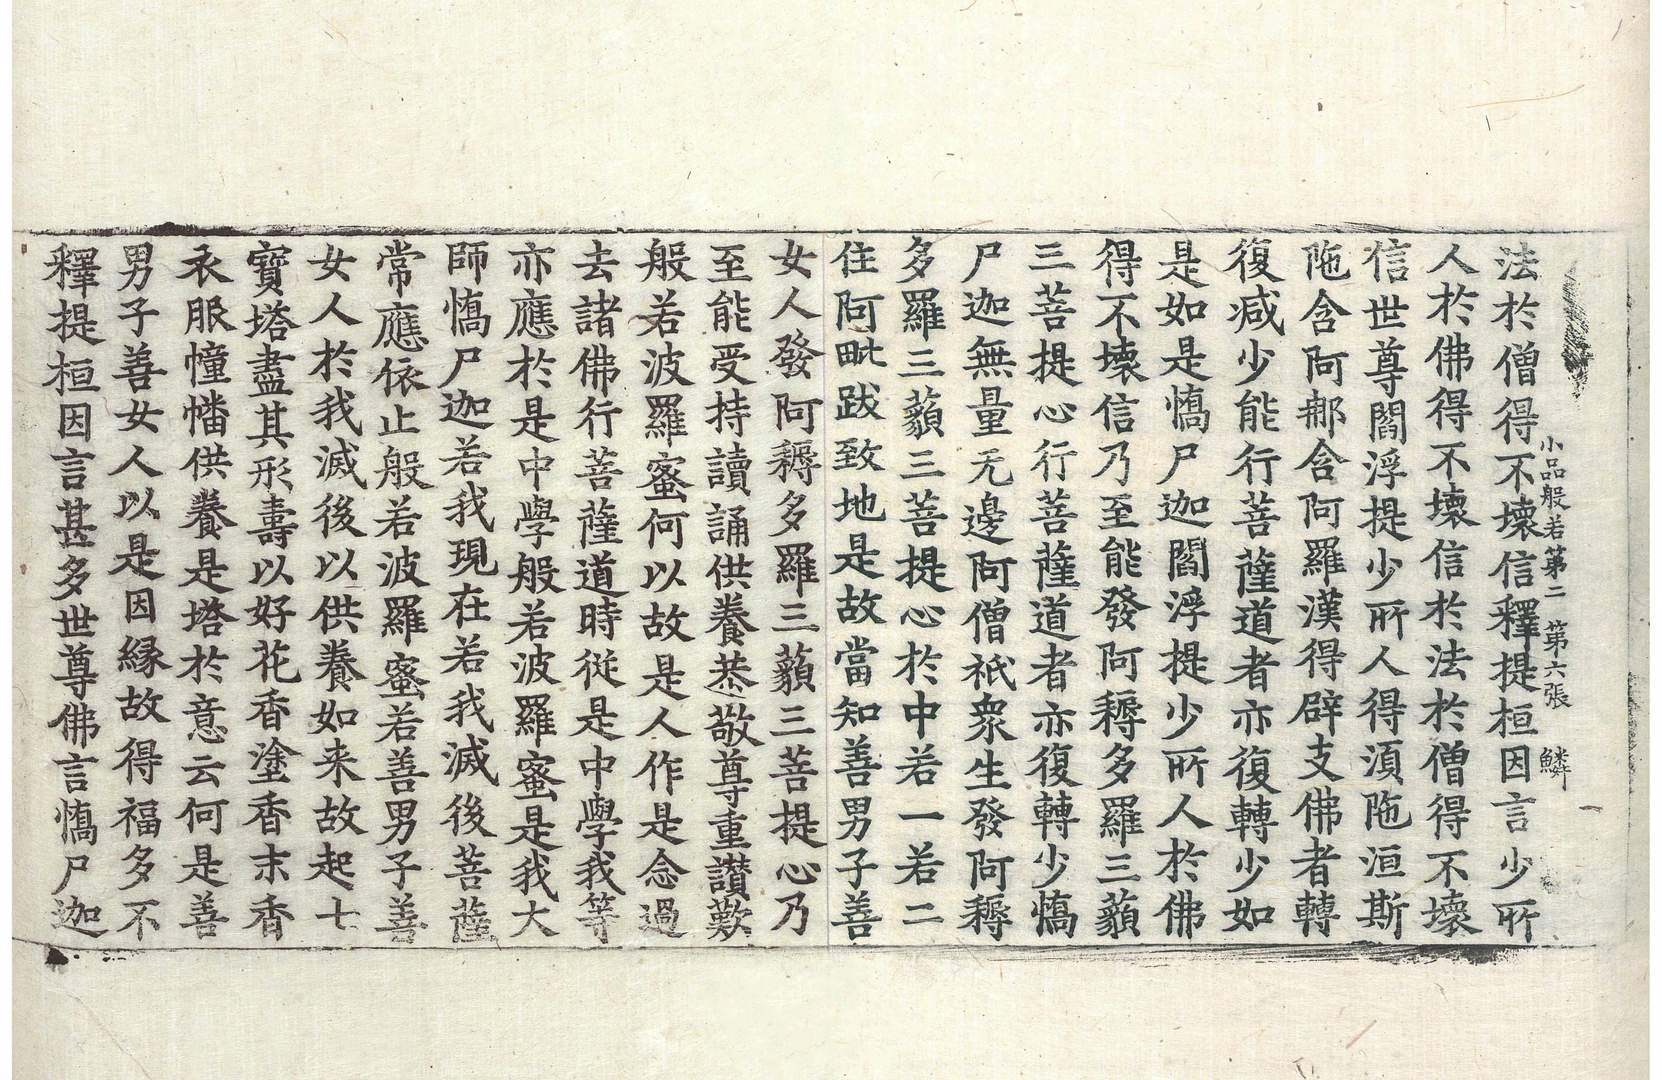 小品般若第二　第六張　鱗
法於僧得不壞信釋提桓因言少所
人於佛得不壞信於法於僧得不壞
信世尊閻浮提少所人得湏陁洹斯
陁含阿郍含阿羅漢得辟支佛者轉
復减少能行菩薩道者亦復轉少如
是如是憍尸迦閻浮提少所人於佛
得不壞信乃至能發阿耨多羅三藐
三菩提心行菩薩道者亦復轉少憍
尸迦無量无邊阿僧祇衆生發阿耨
多羅三藐三菩提心於中若一若二
住阿毗跋致地是故當知善男子善
女人發阿耨多羅三藐三菩提心乃
至能受持讀誦供養恭敬尊重讃歎
般若波羅蜜何以故是人作是念過
去諸佛行菩薩道時從是中學我等
亦應於是中學般若波羅蜜是我大
師憍尸迦若我現在若我滅後菩薩
常應依止般若波羅蜜若善男子善
女人於我滅後以供養如来故起七
寶塔盡其形壽以好花香塗香末香
衣服幢幡供養是塔於意云何是善
男子善女人以是因縁故得福多不
釋提桓因言甚多世尊佛言憍尸迦